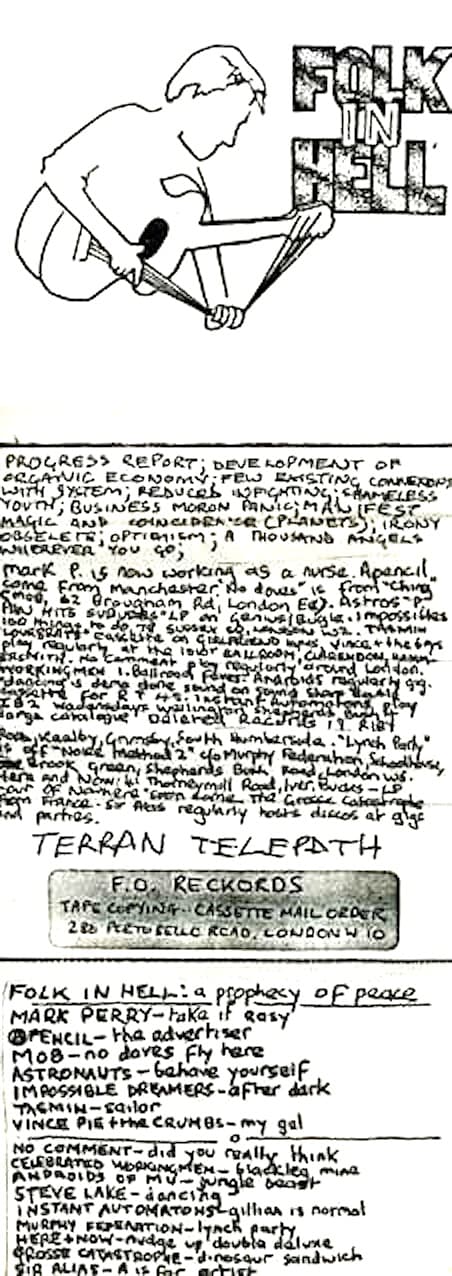 FOLK
IN
HELL
PROGRESS REPORT; DEVELOPMENT OF
ORGANIC ECONOMY; FEW EXISTING CONNEXIONS
WITH SYSTEM; REDUCED INFIGHTING; SHAMELESS
YOUTH; BUSINESS MORON PANIC; MANIFEST
MAGIC AND COINCIDENCE (PLANETS); IRONY
OBSELETE; OPTIMISM; A THOUSAND ANGELS
WHEREVER YOU GO;
Mark P. is now working as a nurse. Apencil
come from Manchester. "No doves" is from "Ching"
Mob, 62 Brougham Rd, London E8). Astros "P-
HITS SUBURBS" LP on Genius/Bugle. Impossibles
100 things to do, SUSSEX LONDON W2. TASMIN
cassette on Vince + the boys
play regularly at the BALLROOM, CLARENDON, HAMM-
ERSMITH. No Comment play regularly around London.
WORKINGMEN 1. Ballroom Faves. Androids regularly gig.
"dancing" is demo done
Instant Automatons, play
large catalogue
Road, Kealby, Grimsby, South Humberside. "Lynch Party"
is off "Noise Method 2" c/o Murphy Federation, Schoolhouse,
Brook Green, Shepherds Bush Road, London W6.
Here and Now: Thorneymill Road, Iver, Bucks - LP
Out OF Nowhere" soon come. The Grosse Catastrophe
from France. Sir Alias regularly hosts discos at gigs
and parties.
TERRAN TELEPATH
F.O. RECKORDS
TAPE COPYING - CASSETTE MAIL ORDER
286 PORTOBELLO ROAD, LONDON W10
FOLK IN HELL: a prophecy of peace
MARK PERRY-take it easy
APENCIL-the advertiser
MOB-no doves fly here
ASTRONAUTS-behave yourself
IMPOSSIBLE DREAMERS-after dark
TASMIN-sailor
VINCE PIE+the CRUMBS-my gal
NO COMMENT-did you really think
CELEBRATED WORKINGMEN-blackleg mine
ANDROIDS OF MU-jungle beast
STEVE LAKE-dancing
INSTANT AUTOMATONS-gillian is normal
MURPHY FEDERATION-lynch party
HERE+NOW-nudge up double deluxe
GROSSE CATASTROPHE-dinosaur sandwich
SIR ALIAS-A is for artist